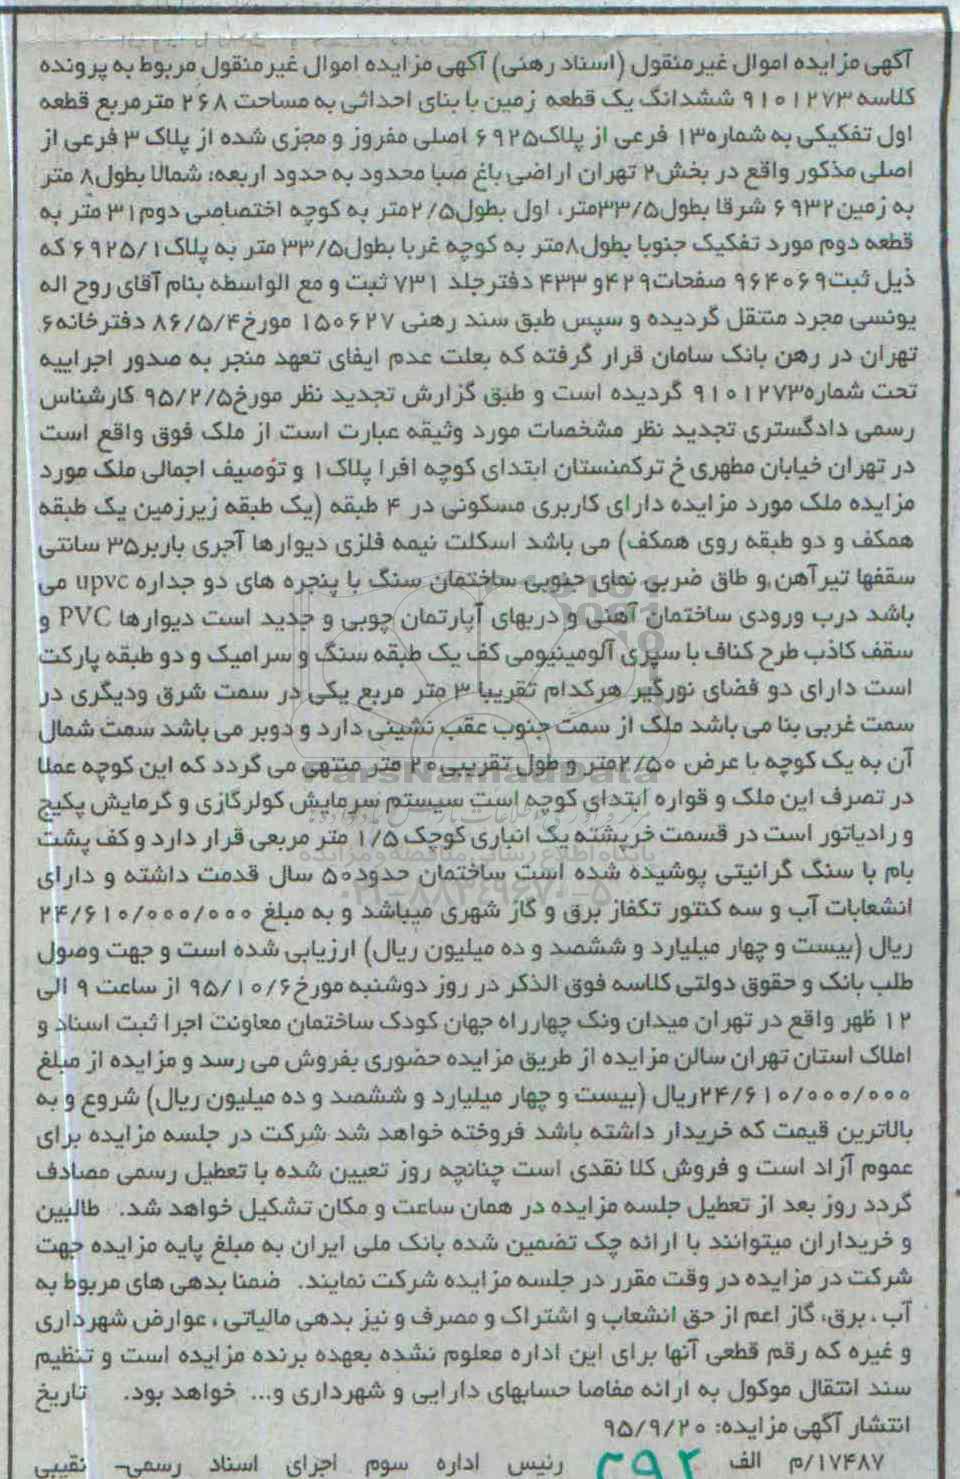 آگهی مزایده اموال غیرمنقول (اسناد رهنی) آگهی مزایده اموال غیرمنقول مربوط به پرونده
کلاسه ۹۱۰۱۲۷۳ ششدانگ یک قطعه زمین با بنای احداثی به مساحت ۲۶۸ مترمربع قطعه
اول تفکیکی به شماره۱۳ فرعی از پلاک۶۹۲۵ اصلی مفروز و مجزی شده از پلاک ۳ فرعی از
اصلی مذکور واقع در بخش۲ تهران اراضی باغ صبا محدود به حدود اربعه: شمالا بطول۸ متر
به زمین۶۹۳۲ شرقا بطول۳۳/۵متر، اول بطول۲/۵متر به کوچه اختصاصی دوم۳۱ متر به
قطعه دوم مورد تفکیک جنوبا بطول۸متر به کوچه غربا بطول۳۳/۵ متر به پلاک۶۹۲۵/۱ که
ذیل ثبت۹۶۴۰۶۹ صفحات۴۲۹و ۴۳۳ دفترجلد ۷۳۱ ثبت و مع الواسطه بنام آقای روح اله
یونسی مجرد منتقل گردیده و سپس طبق سند رهنی ۱۵۰۶۲۷ مورخ۸۶/۵/۴ دفترخانه۶
تهران در رهن بانک سامان قرار گرفته که بعلت عدم ایفای تعهد منجر به صدور اجراییه
تحت شماره۹۱۰۱۲۷۳ گردیده است و طبق گزارش تجدید نظر مورخ۹۵/۲/۵ کارشناس
رسمی دادگستری تجدید نظر مشخصات مورد وثیقه عبارت است از ملک فوق واقع است
در تهران خیابان مطهری خ ترکمنستان ابتدای کوچه افرا پلاک۱ و توصیف اجمالی ملک مورد
مزایده ملک مورد مزایده دارای کاربری مسکونی در ۴ طبقه (یک طبقه زیرزمین یک طبقه
همکف و دو طبقه روی همکف) می باشد اسکلت نیمه فلزی دیوارها آجری باربر۳۵ سانتی
سقفها تیرآهن و طاق ضربی نمای جنوبی ساختمان سنگ با پنجره های دو جداره upvc می
باشد درب ورودی ساختمان آهنی و دربهای آپارتمان چوبی و جدید است دیوارها PVC و
سقف کاذب طرح کناف با سپری آلومینیومی کف یک طبقه سنگ و سرامیک و دو طبقه پارکت
است دارای دو فضای نورگیر هرکدام تقریبا ۳ متر مربع یکی در سمت شرق ودیگری در
سمت غربی بنا می باشد ملک از سمت جنوب عقب نشینی دارد و دوبر می باشد سمت شمال
آن به یک کوچه با عرض ۲/۵۰متر و طول تقریبی۲۰ متر منتهی می گردد که این کوچه عملا
در تصرف این ملک و قواره ابتدای کوچه است سیستم سرمایش کولرگازی و گرمایش پکیج
و رادیاتور است در قسمت خرپشته یک انباری کوچک ۱/۵ متر مربعی قرار دارد و کف پشت
بام با سنگ گرانیتی پوشیده شده است ساختمان حدود۵۰ سال قدمت داشته و دارای
انشعابات آب و سه کنتور تکفاز برق و گاز شهری میباشد و به مبلغ ۲۴/۶۱۰/۰۰۰/۰۰۰
ریال (بیست و چهار میلیارد و ششصد و ده میلیون ریال) ارزیابی شده است و جهت وصول
طلب بانک و حقوق دولتی کلاسه فوق الذکر در روز دوشنبه مورخ۹۵/۱۰/۶ از ساعت ۹ الی
۱۲ ظهر واقع در تهران میدان ونک چهارراه جهان کودک ساختمان معاونت اجرا ثبت اسناد و
املاک استان تهران سالن مزایده از طریق مزایده حضوری بفروش می رسد و مزایده از مبلغ
۲۴/۶۱۰/۰۰۰/۰۰۰ریال (بیست و چهار میلیارد و ششصد و ده میلیون ریال) شروع و به
بالاترین قیمت که خریدار داشته باشد فروخته خواهد شد شرکت در جلسه مزایده برای
عموم آزاد است و فروش کلا نقدی است چنانچه روز تعیین شده با تعطیل رسمی مصادف
گردد روز بعد از تعطیل جلسه مزایده در همان ساعت و مکان تشکیل خواهد شد. طالبین
و خریداران میتوانند با ارائه چک تضمین شده بانک ملی ایران به مبلغ پایه مزایده جهت
شرکت در مزایده در وقت مقرر در جلسه مزایده شرکت نمایند. ضمنا بدهی های مربوط به
آب ، برق، گاز اعم از حق انشعاب و اشتراک و مصرف و نیز بدهی مالیاتی ، عوارض شهرداری
و غیره که رقم قطعی آنها برای این اداره معلوم نشده بعهده برنده مزایده است و تنظیم
سند انتقال موکول به ارائه مفاصا حسابهای دارایی و شهرداری و... خواهد بود. تاریخ
انتشار آگهی مزایده: ۹۵/۹/۲۰
۱۷۴۸۷/م الف رئیس اداره سوم اجرای اسناد رسمی- نقیبی
ParsNamadData
پایگاه اطلاع رسانی مناقصه و مزایده
۰۲۱-۸۸۳۴۹۶۷۰-۵